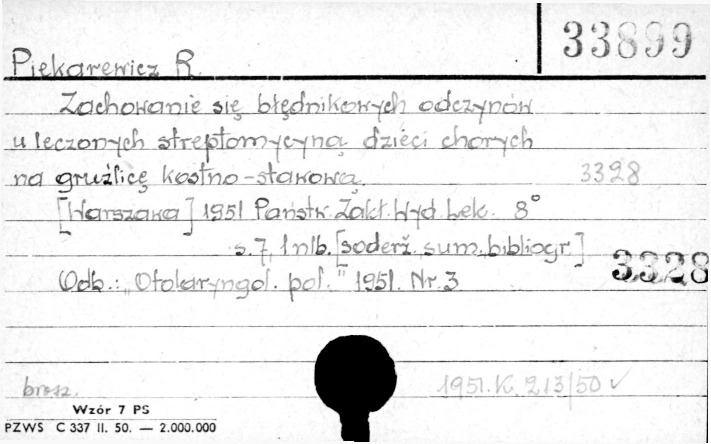 33899
Piekarewicz R.
Zachowanie się błędnikowych odczynów
u leczonych streptomycyną dzieci chorych
na gruźlicę kostno-stawową.
3328
[Warszawa] 1951 Państw. Zakł. Wyd. Lek. 8°
s. 7, 1 nlb. [soderž. sum., bibliogr.]
3328
Odb.: "Otolaryngol. pol." 1951. Nr. 3
brosz.
1951.K. 213/50 ✓
Wzór 7 PS
PZWS C 337 II. 50. — 2.000.000